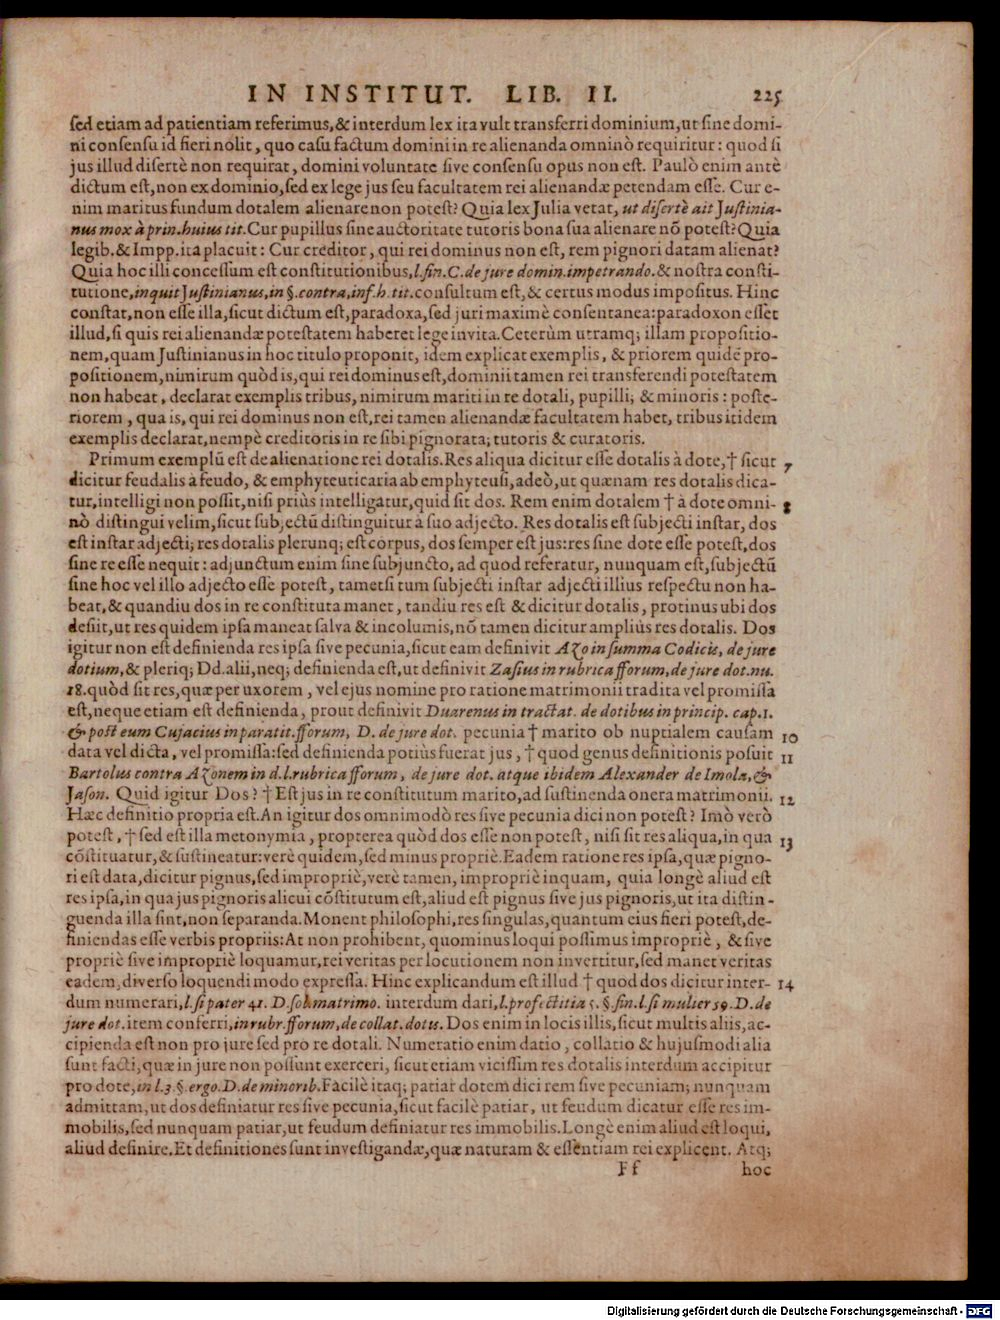 IN INSTITUT. LIB. II. 225
sed etiam ad patientiam referimus,& interdum lex ita vult transferri dominium,ut sine domi-
ni consensu id fieri nolit, quo casu factum domini in re alienanda omninò requiritur: quod si
jus illud disertè non requirat, domini voluntate sive consensu opus non est. Paulò enim antè
dictum est,non ex dominio,sed ex lege jus seu facultatem rei alienandæ petendam esse. Cur e-
nim maritus fundum dotalem alienare non potest? Quia lex Julia vetat, ut disertè ait Justinia-
nus mox à prin.huius tit.Cur pupillus sine auctoritate tutoris bona sua alienare nõ potest?Quia
legib.& Impp.ita placuit: Cur creditor, qui rei dominus non est, rem pignori datam alienat?
Quia hoc illi concessum est constitutionibus,l.fin.C.de jure domin.impetrando.& nostra consti-
tutione,inquit Justinianus,in §.contra,inf.h.tit.consultum est,& certus modus impositus. Hinc
constat,non esse illa,sicut dictum est,paradoxa,sed juri maximè consentanea:paradoxon esset
illud,si quis rei alienandæ potestatem haberet lege invita.Ceterùm utramq; illam propositio-
nem,quam Justinianus in hoc titulo proponit, idem explicat exemplis, & priorem quidẽ pro-
positionem,nimirum quòd is,qui rei dominus est,dominii tamen rei transferendi potestatem
non habeat, declarat exemplis tribus, nimirum mariti in re dotali, pupilli; & minoris: poste-
riorem, qua is, qui rei dominus non est,rei tamen alienandæ facultatem habet, tribus itidem
exemplis declarat,nempè creditoris in re sibi pignorata; tutoris & curatoris.
Primum exemplũ est de alienatione rei dotalis.Res aliqua dicitur esse dotalis à dote,† sicut 7
dicitur feudalis à feudo, & emphyteuticaria ab emphyteusi,adeò,ut quænam res dotalis dica-
tur,intelligi non possit,nisi priùs intelligatur,quid sit dos. Rem enim dotalem † à dote omni- 8
nò distingui velim,sicut subjectũ distinguitur à suo adjecto. Res dotalis est subjecti instar, dos
est instar adjecti; res dotalis plerunq; est corpus, dos semper est jus:res sine dote esse potest,dos
sine re esse nequit: adjunctum enim sine subjuncto, ad quod referatur, nunquam est,subjectũ
sine hoc vel illo adjecto esse potest, tametsi tum subjecti instar adjecti illius respectu non ha-
beat,& quandiu dos in re constituta manet, tandiu res est & dicitur dotalis, protinus ubi dos
desiit,ut res quidem ipsa maneat salva & incolumis,nõ tamen dicitur ampliùs res dotalis. Dos
igitur non est definienda res ipsa sive pecunia,sicut eam definivit Azo in summa Codicis, de jure
dotium,& pleriq; Dd.alii,neq; definienda est,ut definivit Zasius in rubrica fforum,de jure dot.nu.
18.quòd sit res,quæ per uxorem, vel ejus nomine pro ratione matrimonii tradita vel promissa
est,neque etiam est definienda, prout definivit Duarenus in tractat. de dotibus in princip. cap.1.
& post eum Cujacius in paratit.fforum, D. de jure dot. pecunia † marito ob nuptialem causam 10
data vel dicta, vel promissa:sed definienda potiùs fuerat jus, † quod genus definitionis posuit 11
Bartolus contra Azonem in d.l.rubrica fforum, de jure dot. atque ibidem Alexander de Imola, &
Jason. Quid igitur Dos? † Est jus in re constitutum marito,ad sustinenda onera matrimonii. 12
Hæc definitio propria est.An igitur dos omnimodò res sive pecunia dici non potest? Imò verò
potest, † sed est illa metonymia, propterea quòd dos esse non potest, nisi sit res aliqua,in qua 13
cõstituatur,& sustineatur:verè quidem,sed minus propriè.Eadem ratione res ipsa,quæ pigno-
ri est data,dicitur pignus,sed impropriè,verè tamen, impropriè inquam, quia longè aliud est
res ipsa,in qua jus pignoris alicui cõstitutum est,aliud est pignus sive jus pignoris,ut ita distin-
guenda illa sint,non separanda.Monent philosophi,res singulas,quantum eius fieri potest,de-
finiendas esse verbis propriis:At non prohibent, quominus loqui possimus impropriè, & sive
propriè sive impropriè loquamur,rei veritas per locutionem non invertitur,sed manet veritas
eadem,diverso loquendi modo expressa. Hinc explicandum est illud † quod dos dicitur inter- 14
dum numerari,l.si pater 41. D.sol.matrimo. interdum dari,l.profectitia 5.§.fin.l.si mulier 59.D.de
jure dot.item conferri,in rubr.fforum,de collat.dotis. Dos enim in locis illis,sicut multis aliis,ac-
cipienda est non pro jure sed pro re dotali. Numeratio enim datio, collatio & hujusmodi alia
sunt facti,quæ in jure non possunt exerceri, sicut etiam vicissim res dotalis interdum accipitur
pro dote,in l.3.§.ergo.D.de minorib.Facilè itaq; patiar dotem dici rem sive pecuniam; nunquam
admittam,ut dos definiatur res sive pecunia,sicut facilè patiar, ut feudum dicatur esse res im-
mobilis,sed nunquam patiar,ut feudum definiatur res immobilis.Longè enim aliud est loqui,
aliud definire.Et definitiones sunt investigandæ,quæ naturam & essentiam rei explicent. Atq;
Ff hoc
Digitalisierung gefördert durch die Deutsche Forschungsgemeinschaft - DFG